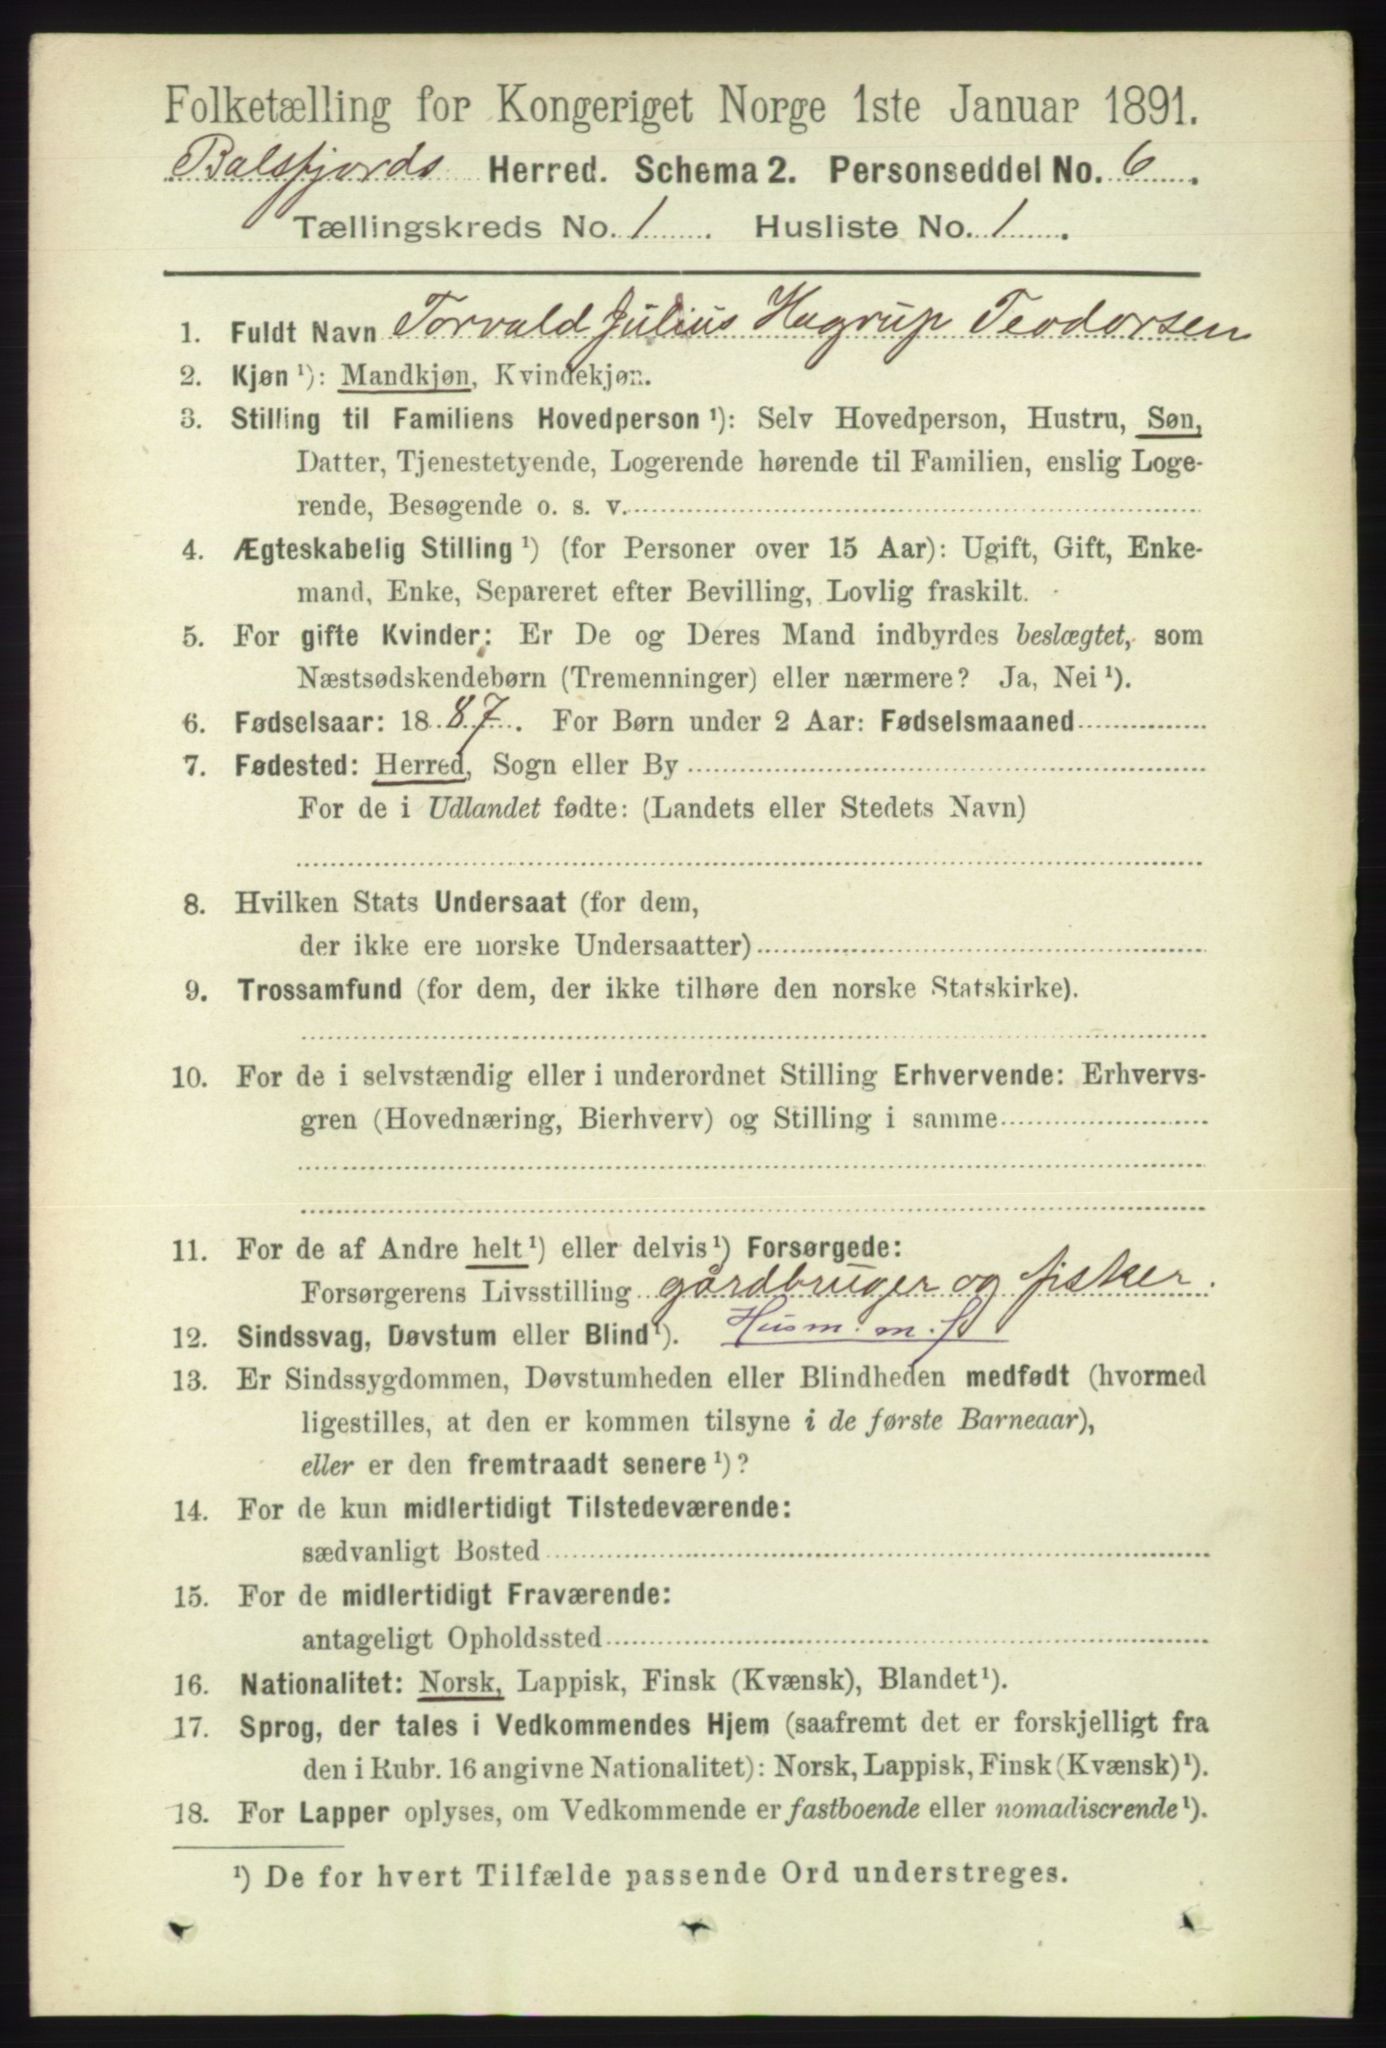 Folketælling for Kongeriget Norge 1ste Januar 1891.
Balsfjords Herred. Schema 2. Personseddel No. 6.
Tællingskreds No. 1. Husliste No. 1.
1. Fuldt Navn Torvald Julius Hagrup Teodorsen
2. Kjøn ¹): Mandkjøn, Kvindekjøn.
3. Stilling til Familiens Hovedperson ¹): Selv Hovedperson, Hustru, Søn,
Datter, Tjenestetyende, Logerende hørende til Familien, enslig Loge-
rende, Besøgende o. s. v.
4. Ægteskabelig Stilling ¹) (for Personer over 15 Aar): Ugift, Gift, Enke-
mand, Enke, Separeret efter Bevilling, Lovlig fraskilt.
5. For gifte Kvinder: Er De og Deres Mand indbyrdes beslægtet, som
Næstsødskendebørn (Tremenninger) eller nærmere? Ja, Nei ¹).
6. Fødselsaar: 1887. For Børn under 2 Aar: Fødselsmaaned
7. Fødested: Herred, Sogn eller By
For de i Udlandet fødte: (Landets eller Stedets Navn)
8. Hvilken Stats Undersaat (for dem,
der ikke ere norske Undersaatter)
9. Trossamfund (for dem, der ikke tilhøre den norske Statskirke).
10. For de i selvstændig eller i underordnet Stilling Erhvervende: Erhvervs-
gren (Hovednæring, Bierhverv) og Stilling i samme
11. For de af Andre helt ¹) eller delvis ¹) Forsørgede:
Forsørgerens Livsstilling gårdbruger og fisker.
12. Sindssvag, Døvstum eller Blind ¹). Husm. m. J
13. Er Sindssygdommen, Døvstumheden eller Blindheden medfødt (hvormed
ligestilles, at den er kommen tilsyne i de første Barneaar),
eller er den fremtraadt senere ¹)?
14. For de kun midlertidigt Tilstedeværende:
sædvanligt Bosted
15. For de midlertidigt Fraværende:
antageligt Opholdssted
16. Nationalitet: Norsk, Lappisk, Finsk (Kvænsk), Blandet ¹).
17. Sprog, der tales i Vedkommendes Hjem (saafremt det er forskjelligt fra
den i Rubr. 16 angivne Nationalitet): Norsk, Lappisk, Finsk (Kvænsk) ¹).
18. For Lapper oplyses, om Vedkommende er fastboende eller nomadiserende ¹).
¹) De for hvert Tilfælde passende Ord understreges.